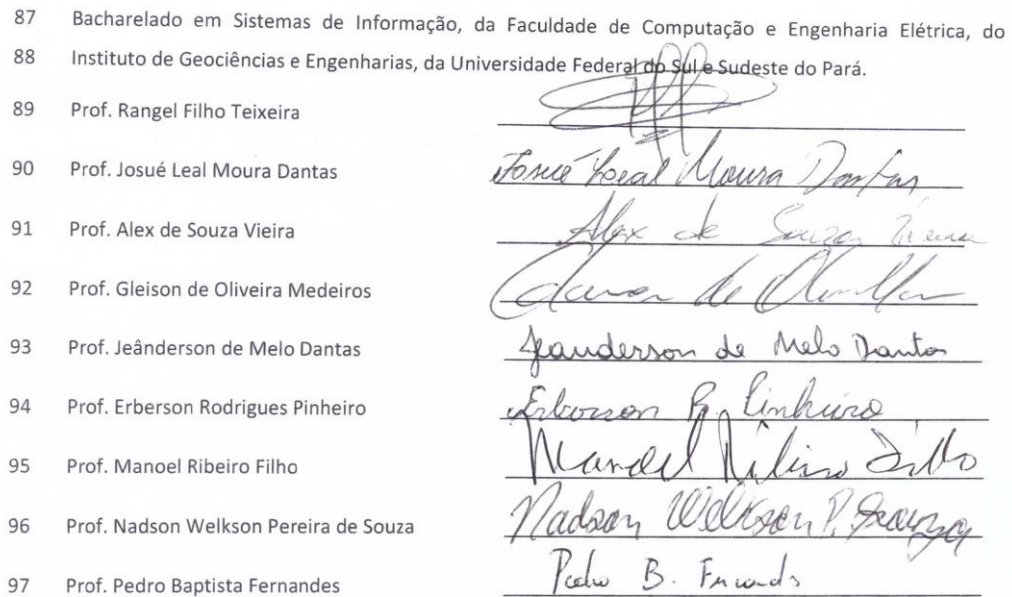 87 Bacharelado em Sistemas de Informação, da Faculdade de Computação e Engenharia Elétrica, do
88 Instituto de Geociências e Engenharias, da Universidade Federal do Sul e Sudeste do Pará.
89 Prof. Rangel Filho Teixeira
90 Prof. Josué Leal Moura Dantas Josué Leal Moura Dantas
91 Prof. Alex de Souza Vieira Alex de Souza Vieira
92 Prof. Gleison de Oliveira Medeiros de
93 Prof. Jeânderson de Melo Dantas Jeanderson de Melo Dantas
94 Prof. Erberson Rodrigues Pinheiro Erberson R. Pinheiro
95 Prof. Manoel Ribeiro Filho Manoel Ribeiro Filho
96 Prof. Nadson Welkson Pereira de Souza Nadson Welkson P. Souza
97 Prof. Pedro Baptista Fernandes Pedro B. Fernands